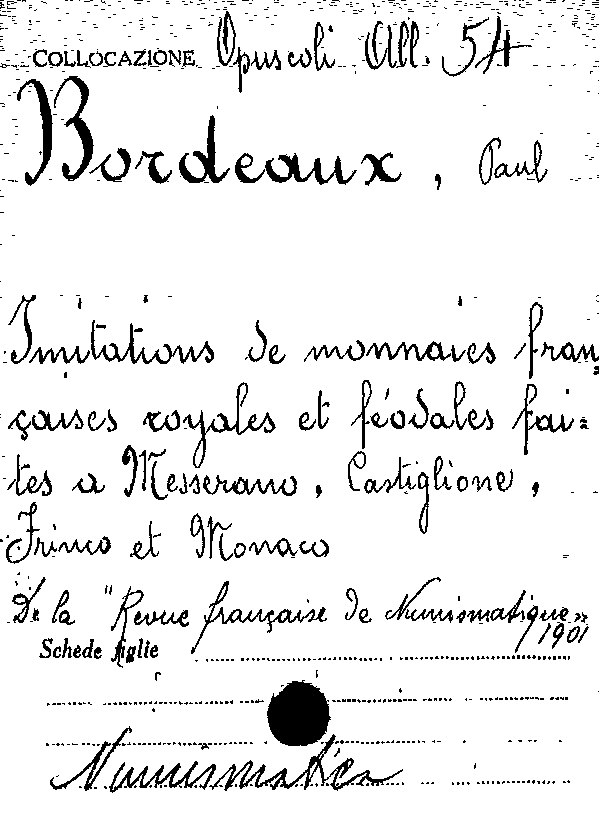 COLLOCAZIONE Opuscoli All. 54
Bordeaux, Paul
Imitations de monnaies fran=
çaises royales et féodales fai=
tes a Messerano, Castiglione,
Frinco et Monaco
De la "Revue française de Numismatique"
1901
Schede figlie
Numismatica